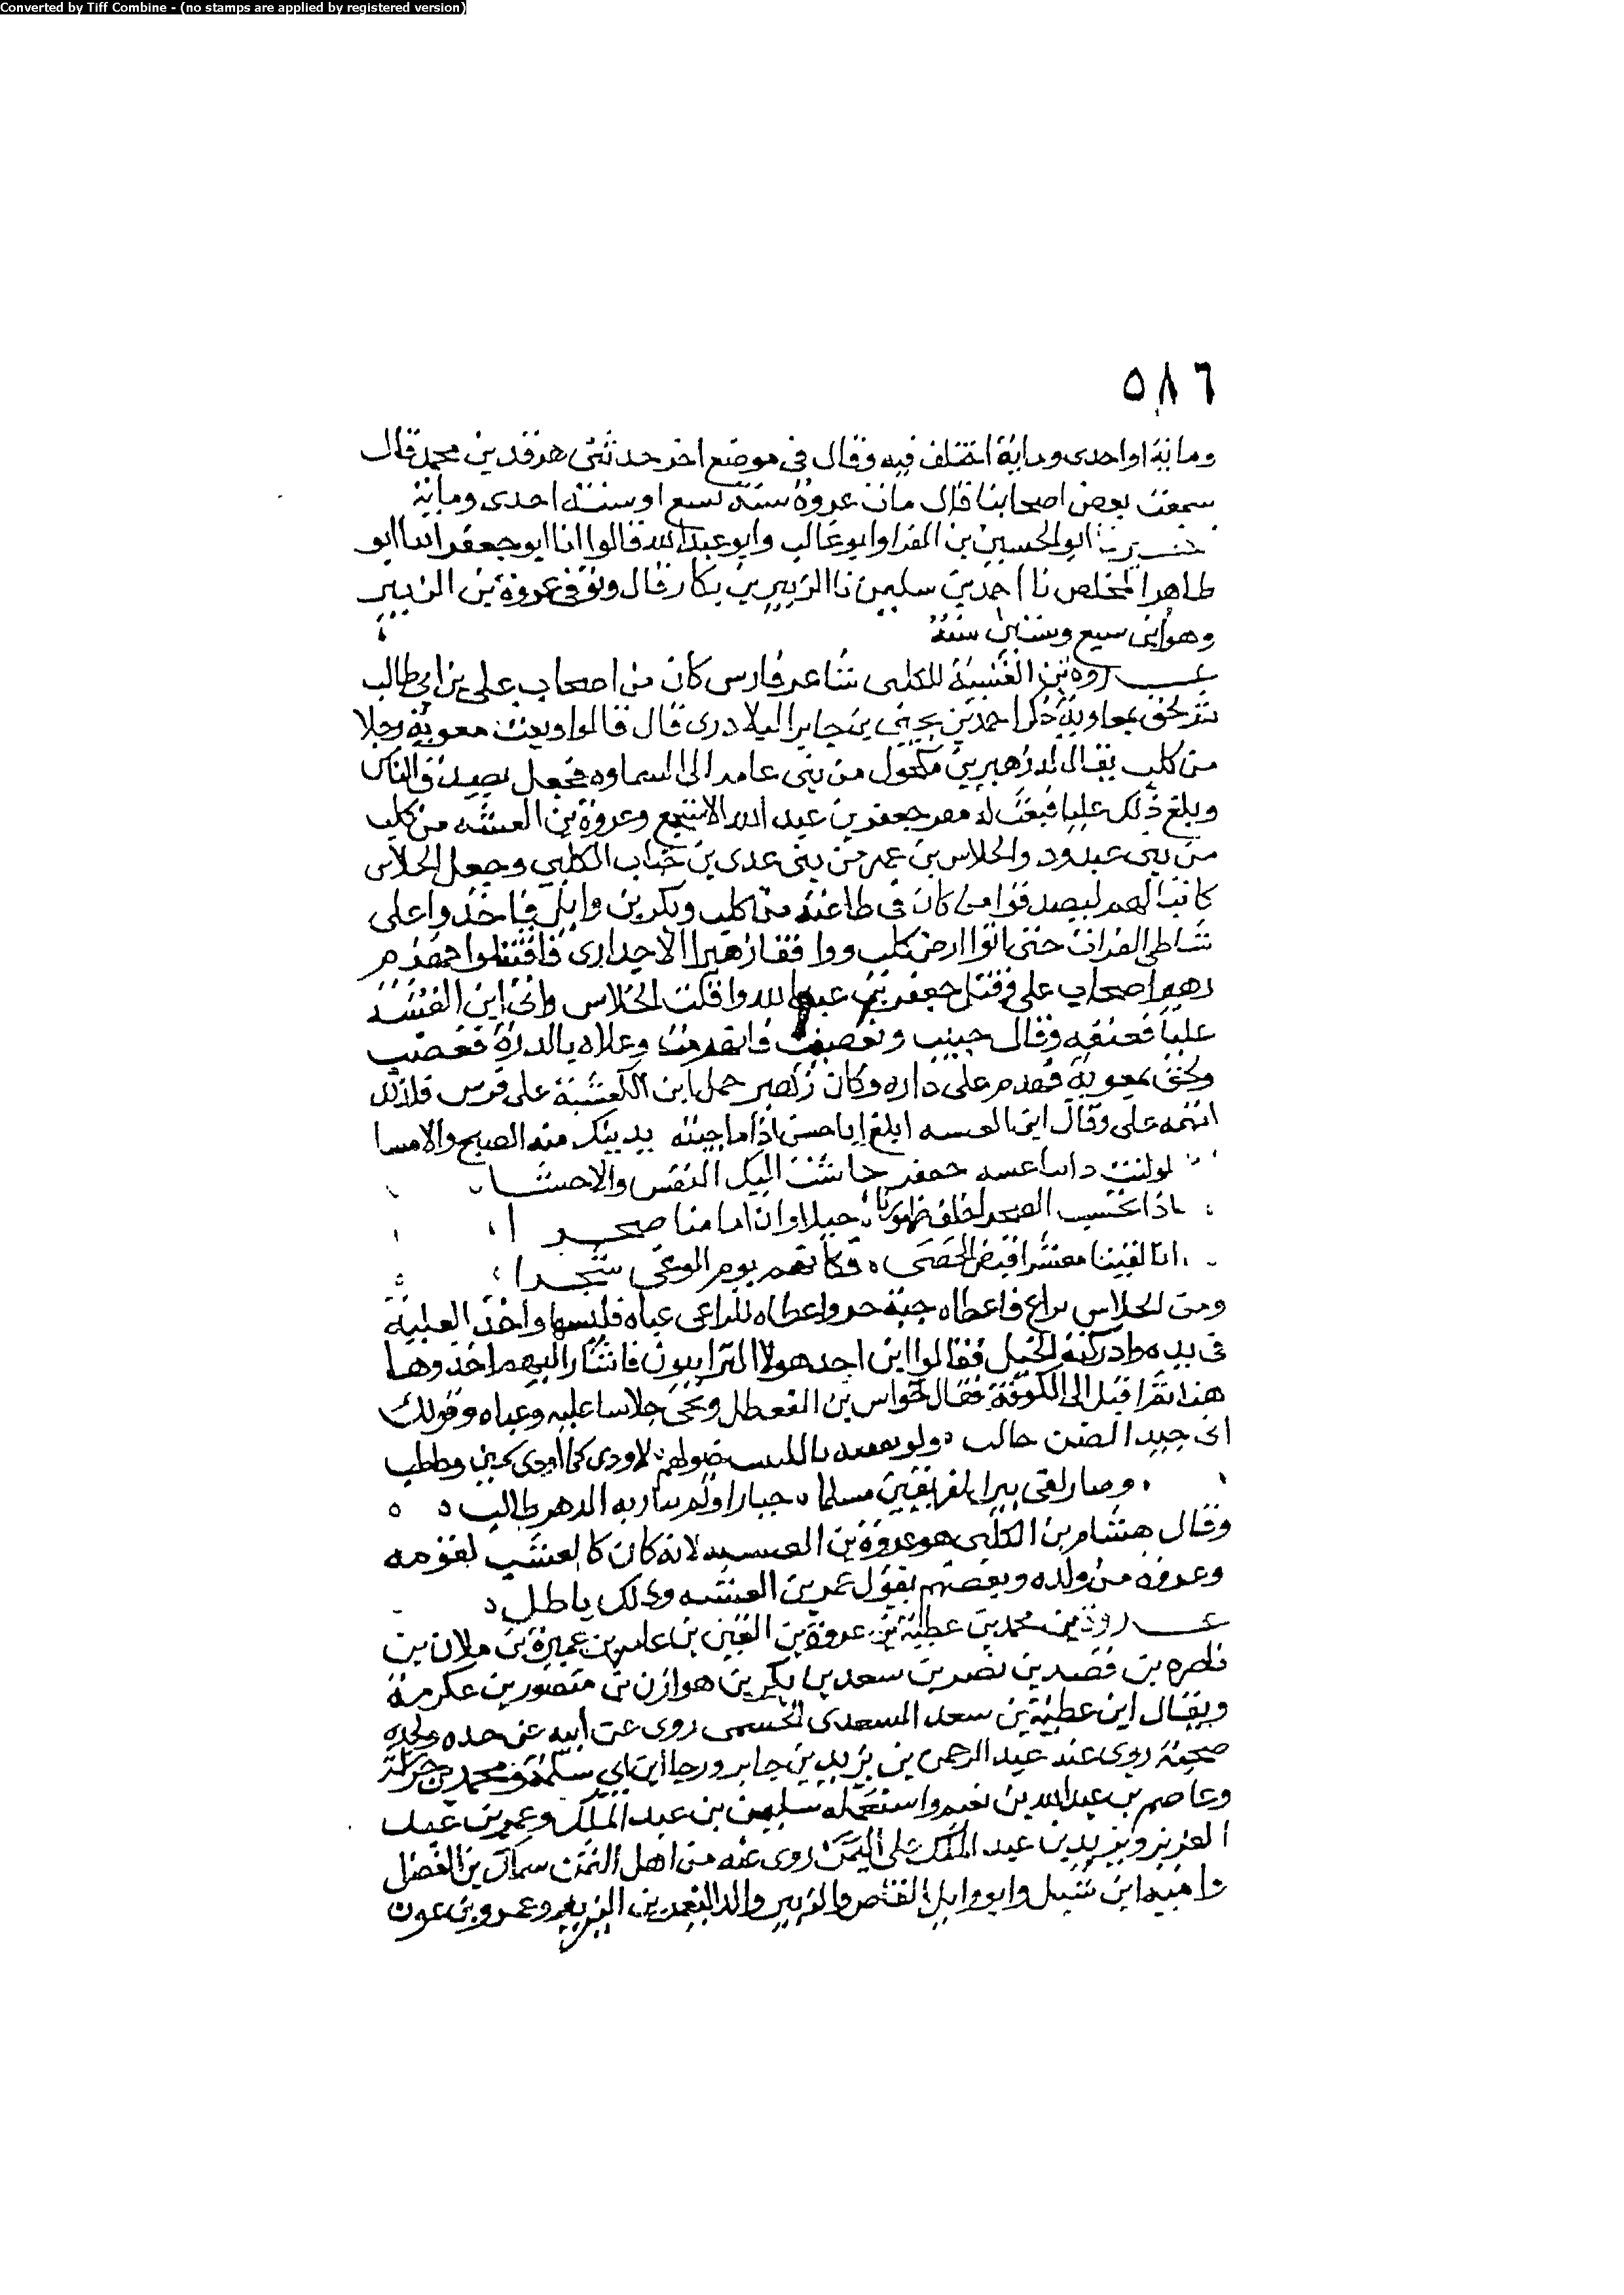 Converted by Tiff Combine - (no stamps are applied by registered version)
٥٨٦
وماىة او احدى وماىة اختلف فيه وقال في موضع اخر حدثني هرون بن محمد قال
سمعت بعض اصحابنا قال مات عروة سنة تسع او سنة احدى وماىة
ابو الحسين بن الفرا وابو غالب وابو عبد الله قالوا انا ابو جعفر انا ابو
طاهر المخلص نا احمد بن سليمن نا الزبير بن بكار قال وتوفي عروة بن الزبير
وهو ابن سبع وستين سنة
عــروة بن العشبة الكلبي شاعر فارس كان من اصحاب علي بن ابي طالب
ثم لحق بمعاوية ذكر احمد بن يحيى بن جابر البلادري قال قالوا وبعث معوية رجلا
من كلب يقال له زهير بن مكحول من بني عامر الى السماوه فجعل يصدق الناس
وبلغ ذلك عليا فبعث له جعفر بن عبد الله الاشجع وعروة بن العشبه من كلب
من بني عبد ود والجلاس بن عمير من بني عدي بن جناب الكلبي وجعل الجلاس
كاتبا لهم ليصدقوا من كان في طاعته من كلب وبكر بن وايل فاخذوا على
شاطى الفرات حتى اتوا ارض كلب ووافقا زهيرا الاجداري فاقتتلوا فهزم
زهير اصحاب علي وقتل جعفر بن عبد الله وافلت الجلاس واتى ابن العشبه
عليا فعنفه وقال جبنت وتعصبت فانهزمت وعلاه بالدرة فغضب
ولحق بمعوية فهدم علي داره وكان زهير حمل ابن العشبة على فرس فلذلك
اتهمه علي وقال ابن العسه ابلغ ابا حسن اذا ما جيته يدنيك منه الصبح والامسا
لو كنت جعفر جاشت اليك النفس والاحشا
اذ تحسب الصحرا خلف ظهورنا جبلا وان امامنا صحــرا
انا لقينا معشرا قبض الحصى فكانهم يوم الوغى شجــرا
ومر الجلاس براع فاعطاه جبة خز واعطاه الراعي عباه فلبسها واخذ العلبة
في يده وادركته الخيل فقالوا اين اخذ هولا الترابيون فاشار اليهم اخذوا ها
هنا ثم اقبل الى الكوفة فقال جواس بن القعطل ونجى جلاسا علبه وعباه وقولك
اني جيد الصر حالب لاودى كما اودى
وصار لقى بين الفريقين مسلما جبارا ولم يثار به الدهر طالب
وقال هشام بن الكلبي هو عروة بن العشبه لانه كان كالعشب لقومه
وعروة من ولده وبعضهم يقول عمر بن العشبه وذلك باطل
عــروة بن محمد بن عطية بن عروة بن القين بن عامر بن عميرة بن ملان بن
ناصره بن قصيه بن نصر بن سعد بن بكر بن هوازن بن منصور بن عكرمة
ويقال ابن عطية بن سعد السعدي الجشمي روى عن ابيه عن جده ولجده
صحبة روى عنه عبد الرحمن بن يزيد بن جابر ورجا ابن ابي سلمة ومحمد بن خراشة
وعاصم بن عبد الله بن نعيم واستعمله سليمن بن عبد الملك وعمر بن عبد
العزيز ويزيد بن عبد الملك على اليمن روى عنه من اهل اليمن سماك بن الفضل
وامية ابن شبل وابو وايل القاص والزبير والد النعمن بن الزبير وعمرو بن عون